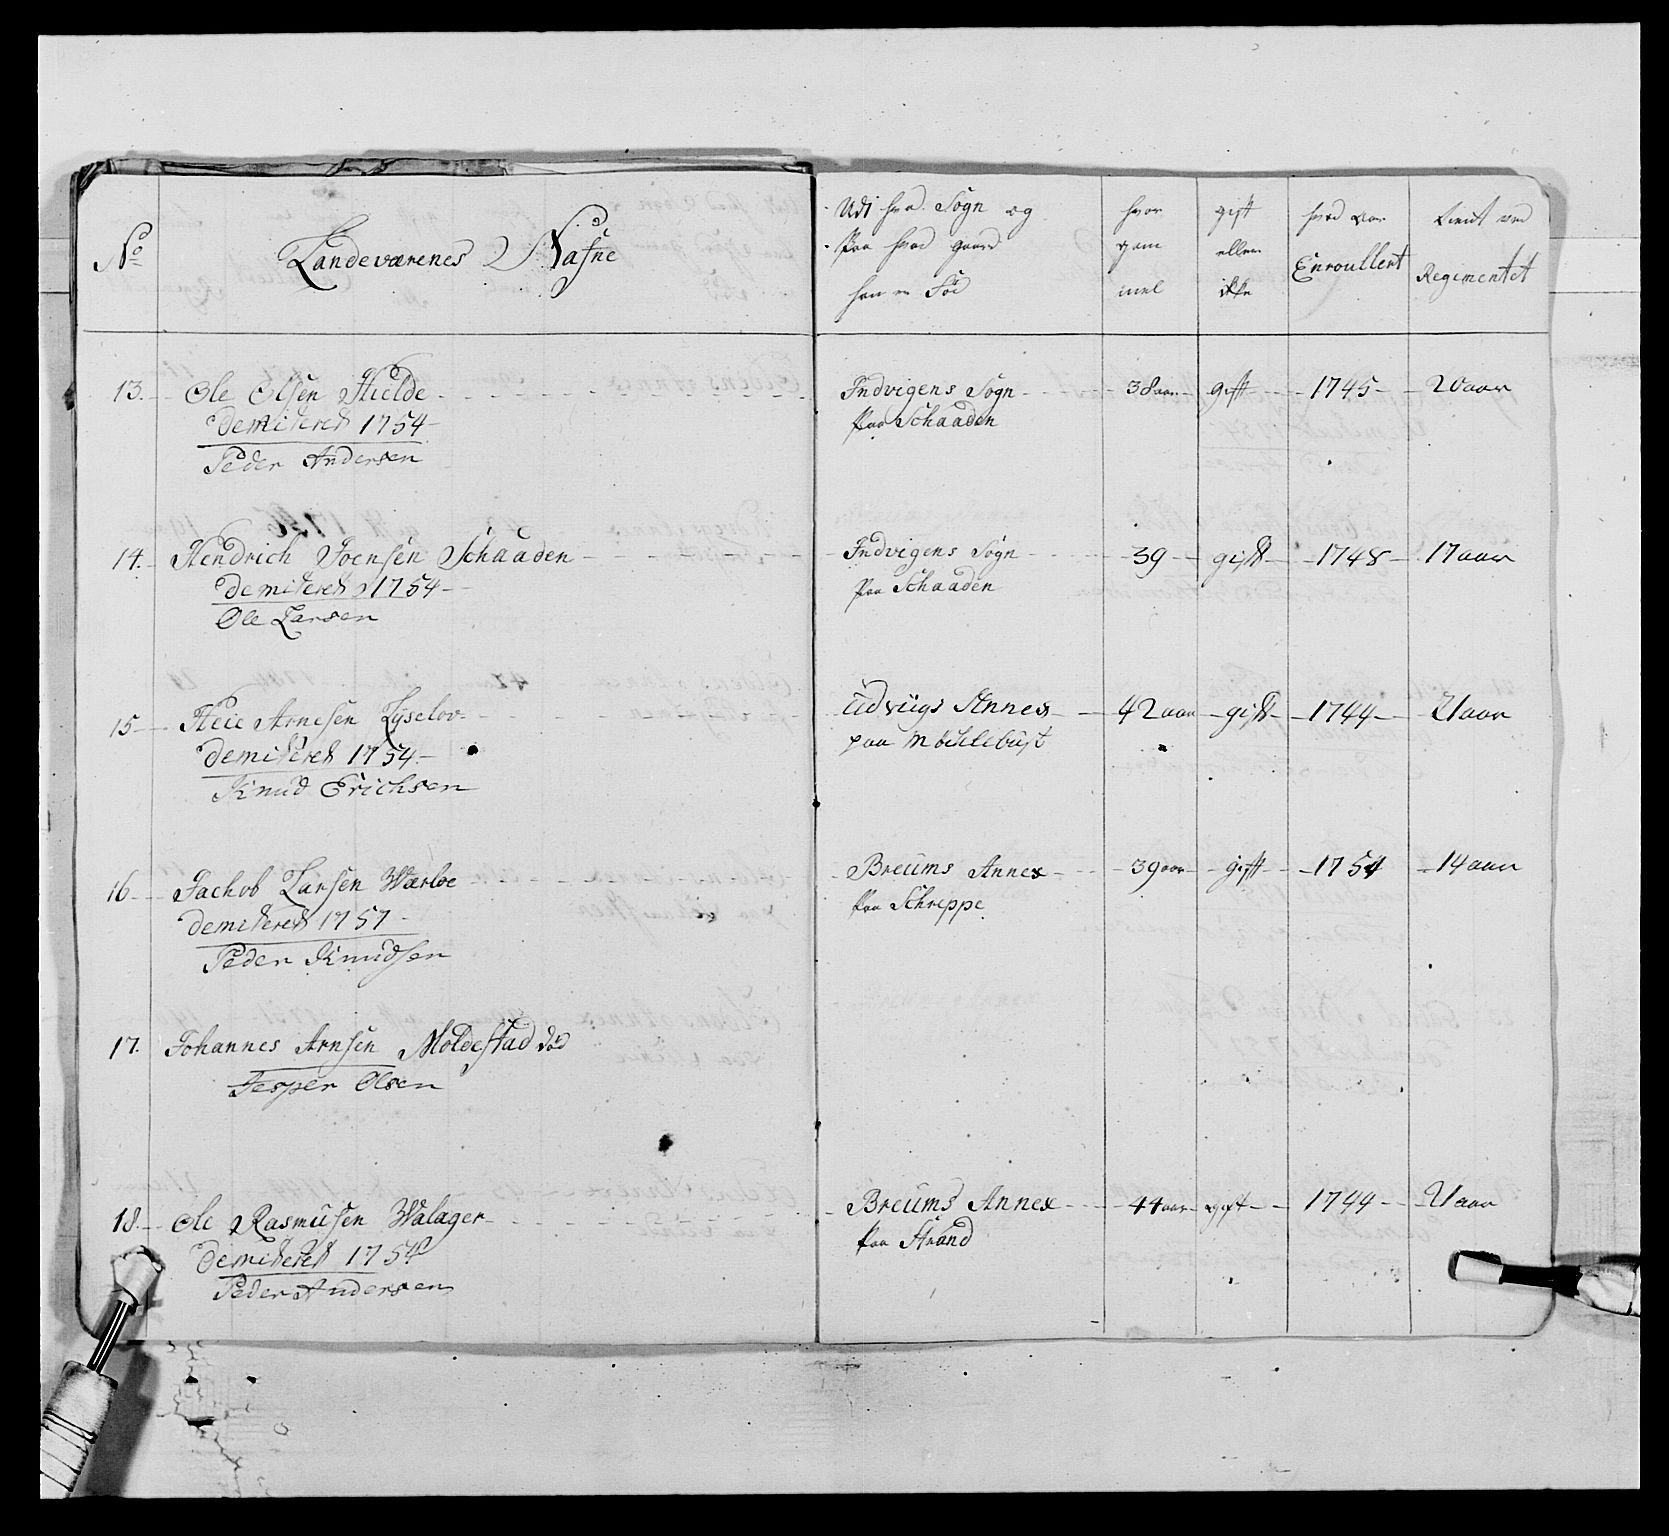 No
Landeværenes Nafne
Udi hvad Sogn og
Paa hvad gaard
han er Fød
hvor
gam
mel
gift
eller
ikke
hvad aar
Enroullert
tient ved
Regimentet
13. Ole Olsen Hielde Indvigens Sogn 38 aar gift 1745 20 aar
demiteret 1754 Paa Schaaden
Peder Andersen
14. Hendrich Joensen Schaaden Indvigens Sogn 39 gift 1748 17 aar
demiteret 1754 Paa Schaaden
Ole Larsen
15 Arnesen Udviigs Annex 42 aar gift 1744 21 aar
demiteret 1754 paa
Knud Erichsen
16 Jachob Larsen Wærloe Breums Annex 39 aar gift 1751 14 aar
demiteret 1757 Paa Schreppe
Peder Knudsen
17. Johannes Arnsen Moldestad død
Jesper Olsen
18. Ole Rasmusen Walager Breums Annex 44 aar gift 1744 21 aar
demiteret 1754 Paa Strand
Peder Andersen